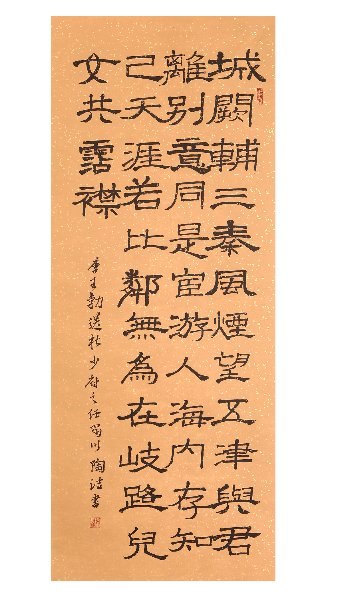 城闕輔三秦風煙望五津與君
離別意同是宦游人海内存知
己天涯若比鄰無為在岐路兒
女共霑襟
唐王勃送杜少府之任蜀川 陶書